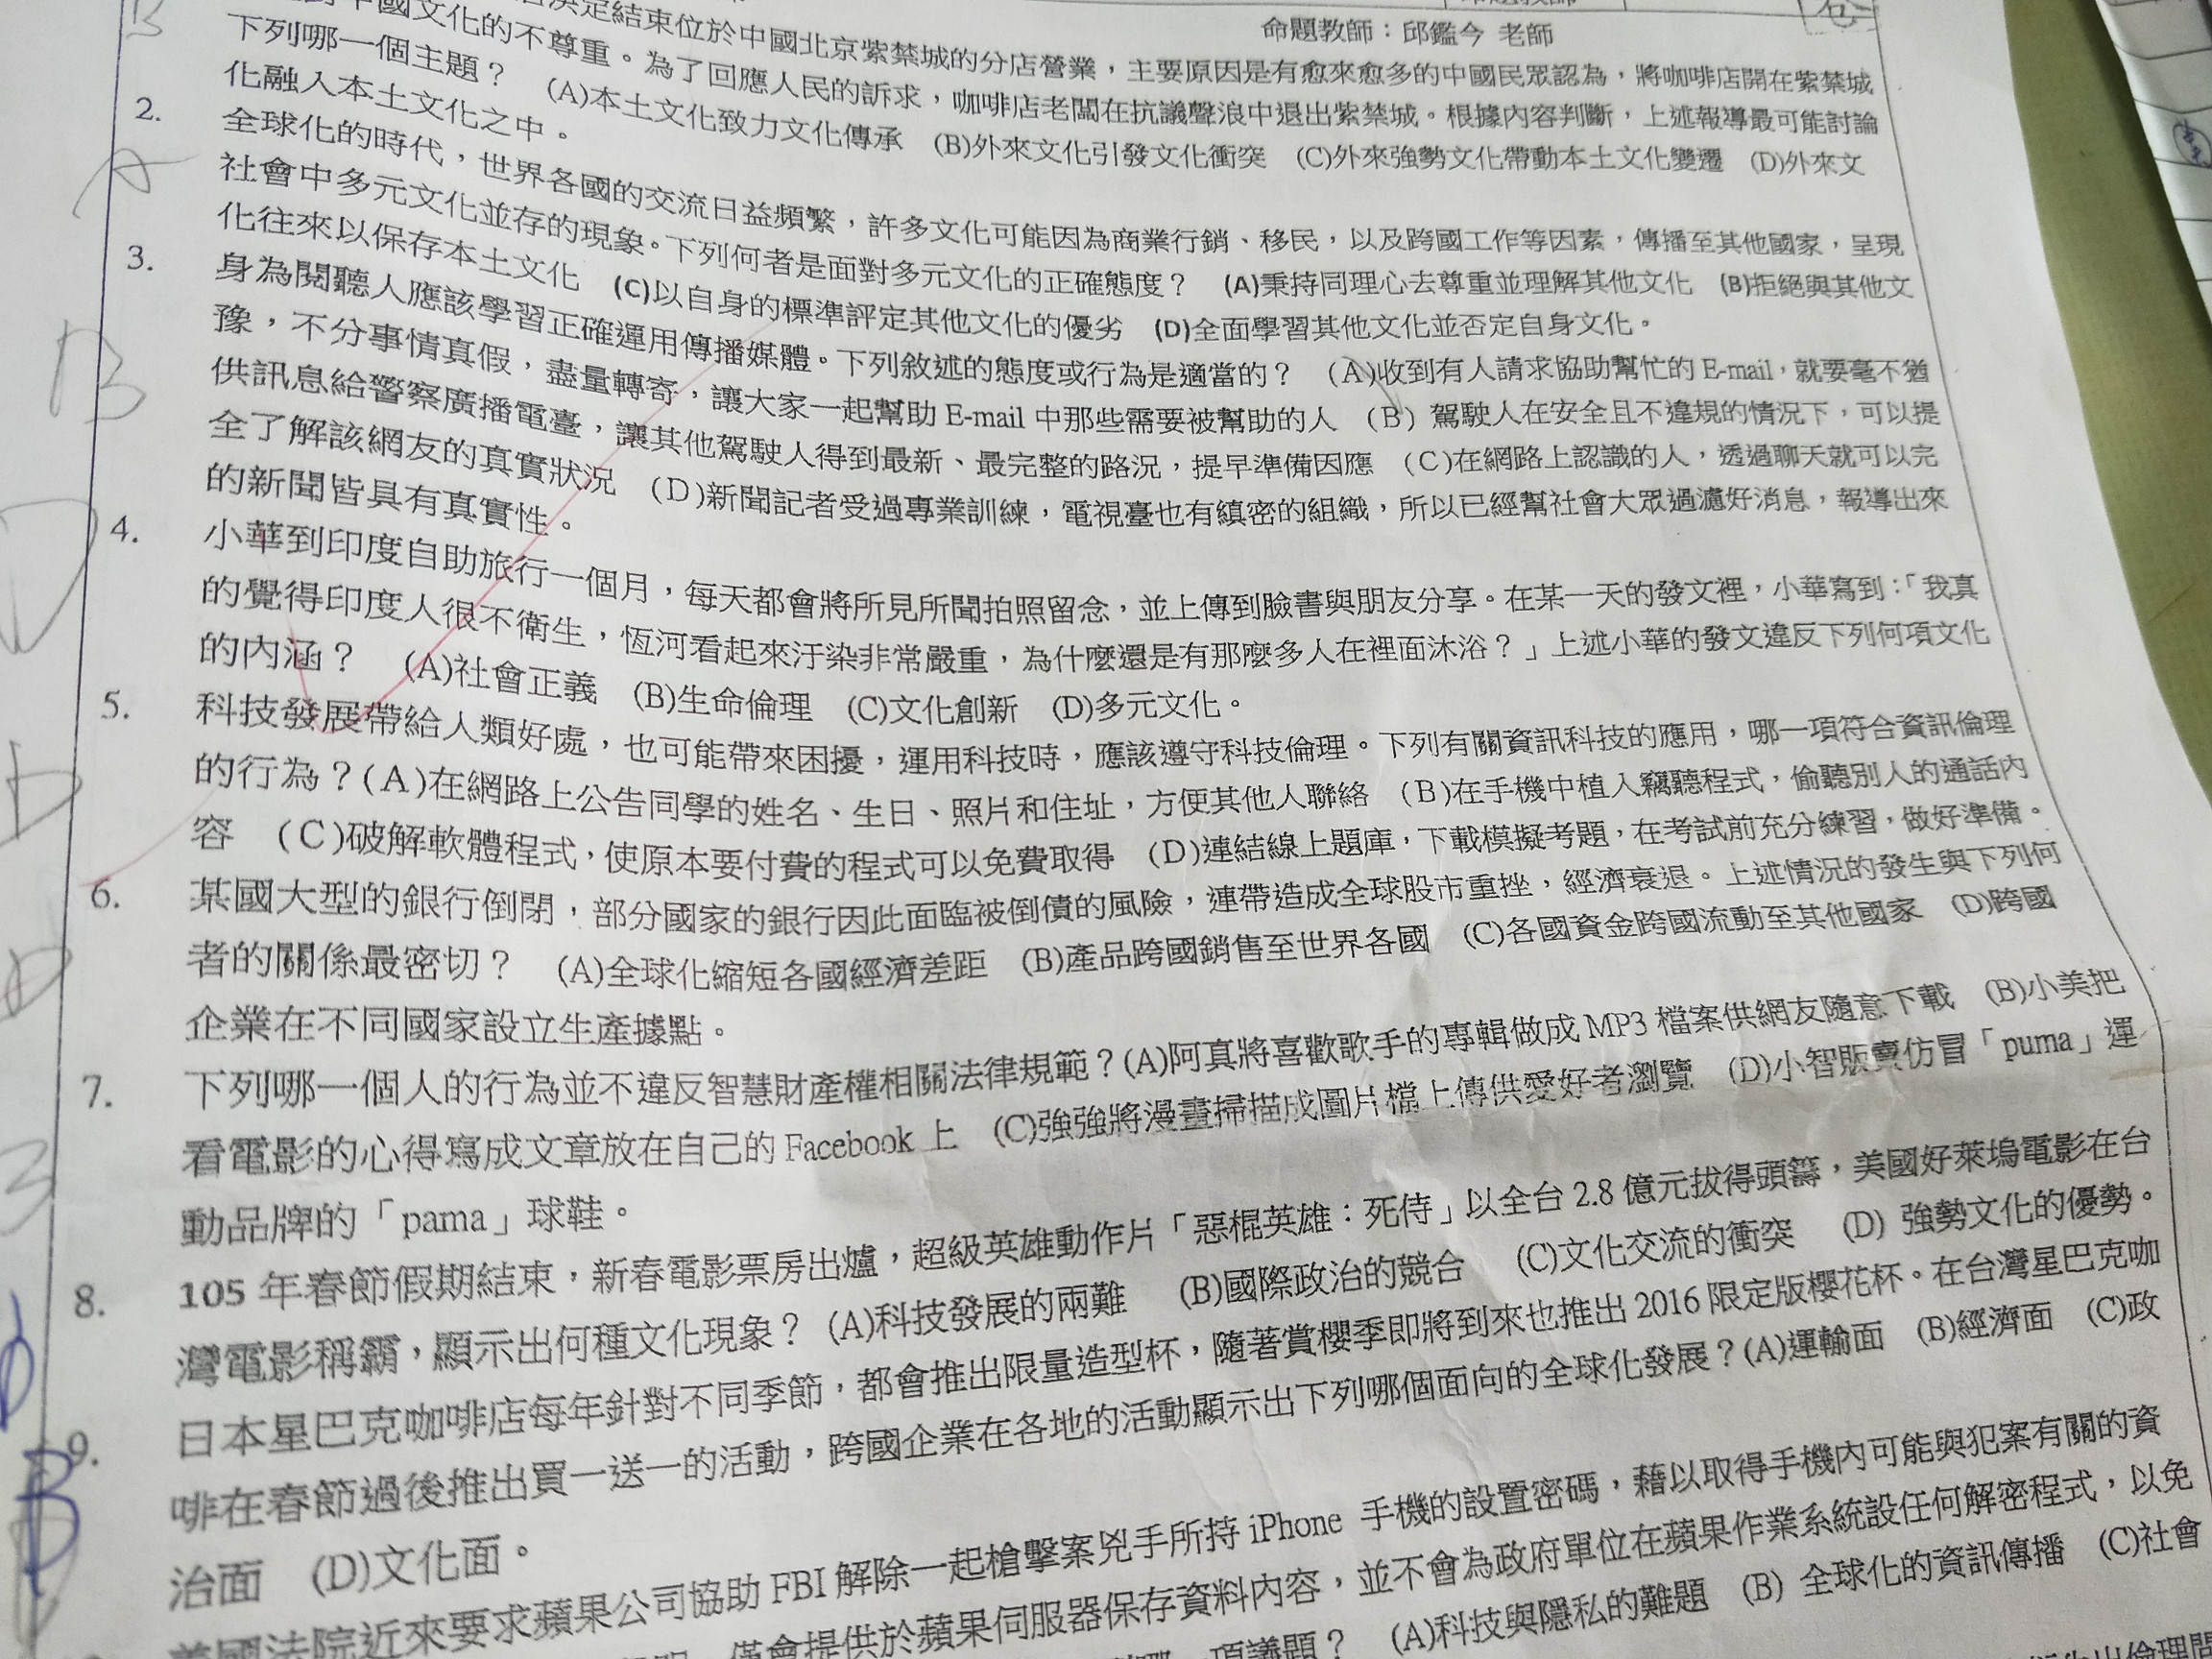 決定結束位於中國北京紫禁城的分店營業，主要原因是有愈來愈多的中國民眾認為，將咖啡店開在紫禁城
命題教師：邱鑑今 老師
卷
B
中國文化的不尊重。為了回應人民的訴求，咖啡店老闆在抗議聲浪中退出紫禁城。根據內容判斷，上述報導最可能討論
下列哪一個主題？ (A)本土文化致力文化傳承 (B)外來文化引發文化衝突 (C)外來強勢文化帶動本土文化變遷 (D)外來文
化融入本土文化之中。
A
2. 全球化的時代，世界各國的交流日益頻繁，許多文化可能因為商業行銷、移民，以及跨國工作等因素，傳播至其他國家，呈現
社會中多元文化並存的現象。下列何者是面對多元文化的正確態度？ (A)秉持同理心去尊重並理解其他文化 (B)拒絕與其他文
化往來以保存本土文化 (C)以自身的標準評定其他文化的優劣 (D)全面學習其他文化並否定自身文化。
B
3. 身為閱聽人應該學習正確運用傳播媒體。下列敘述的態度或行為是適當的？ (A)收到有人請求協助幫忙的 E-mail，就要毫不猶
豫，不分事情真假，盡量轉寄，讓大家一起幫助 E-mail 中那些需要被幫助的人 (B) 駕駛人在安全且不違規的情況下，可以提
供訊息給警察廣播電臺，讓其他駕駛人得到最新、最完整的路況，提早準備因應 (C)在網路上認識的人，透過聊天就可以完
全了解該網友的真實狀況 (D)新聞記者受過專業訓練，電視臺也有縝密的組織，所以已經幫社會大眾過濾好消息，報導出來
的新聞皆具有真實性。
D
4. 小華到印度自助旅行一個月，每天都會將所見所聞拍照留念，並上傳到臉書與朋友分享。在某一天的發文裡，小華寫到：「我真
的覺得印度人很不衛生，恆河看起來汙染非常嚴重，為什麼還是有那麼多人在裡面沐浴？」上述小華的發文違反下列何項文化
的內涵？ (A)社會正義 (B)生命倫理 (C)文化創新 (D)多元文化。
D
5. 科技發展帶給人類好處，也可能帶來困擾，運用科技時，應該遵守科技倫理。下列有關資訊科技的應用，哪一項符合資訊倫理
的行為？(A)在網路上公告同學的姓名、生日、照片和住址，方便其他人聯絡 (B)在手機中植入竊聽程式，偷聽別人的通話內
容 (C)破解軟體程式，使原本要付費的程式可以免費取得 (D)連結線上題庫，下載模擬考題，在考試前充分練習，做好準備。
D
6. 某國大型的銀行倒閉，部分國家的銀行因此面臨被倒債的風險，連帶造成全球股市重挫，經濟衰退。上述情況的發生與下列何
者的關係最密切？ (A)全球化縮短各國經濟差距 (B)產品跨國銷售至世界各國 (C)各國資金跨國流動至其他國家 (D)跨國
企業在不同國家設立生產據點。
7. 下列哪一個人的行為並不違反智慧財產權相關法律規範？(A)阿真將喜歡歌手的專輯做成 MP3 檔案供網友隨意下載 (B)小美把
看電影的心得寫成文章放在自己的 Facebook 上 (C)強強將漫畫掃描成圖片檔上傳供愛好者瀏覽 (D)小智販賣仿冒「puma」運
動品牌的「pama」球鞋。
8. 105 年春節假期結束，新春電影票房出爐，超級英雄動作片「惡棍英雄：死侍」以全台 2.8 億元拔得頭籌，美國好萊塢電影在台
灣電影稱霸，顯示出何種文化現象？ (A)科技發展的兩難 (B)國際政治的競合 (C)文化交流的衝突 (D) 強勢文化的優勢。
B
9. 日本星巴克咖啡店每年針對不同季節，都會推出限量造型杯，隨著賞櫻季即將到來也推出 2016 限定版櫻花杯。在台灣星巴克咖
啡在春節過後推出買一送一的活動，跨國企業在各地的活動顯示出下列哪個面向的全球化發展？(A)運輸面 (B)經濟面 (C)政
治面 (D)文化面。
美國法院近來要求蘋果公司協助 FBI 解除一起槍擊案兇手所持 iPhone 手機的設置密碼，藉以取得手機內可能與犯案有關的資
僅會提供於蘋果伺服器保存資料內容，並不會為政府單位在蘋果作業系統設任何解密程式，以免
項議題？ (A)科技與隱私的難題 (B) 全球化的資訊傳播 (C)社會